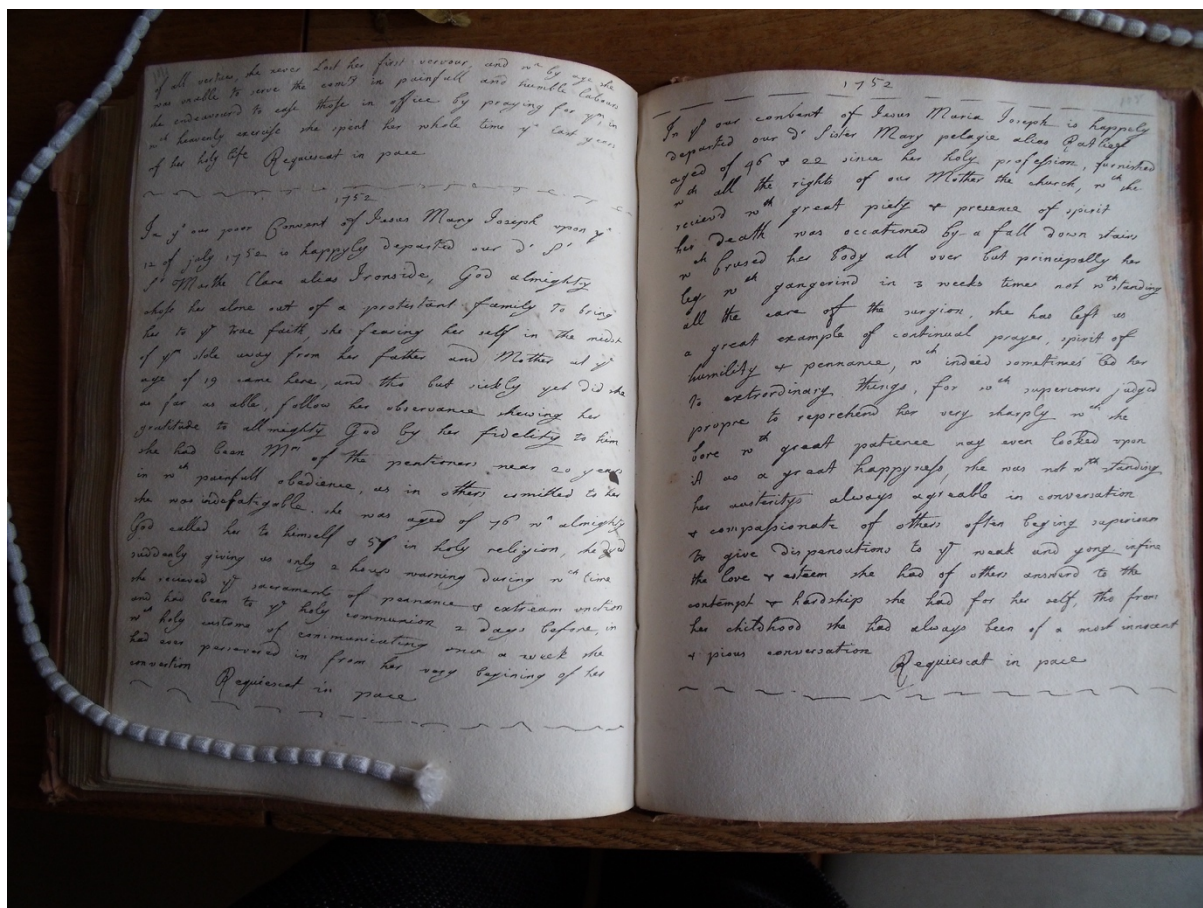 of all vertues, she never Lost her first vervour, and wn by age she
was unable to serve the comty in painfull and humble labours
she endeavourd to ease those in office by praying for ym in
wch heavenly exercise she spent her whole time ye Last years
of her holy life Requiescat in pace
1752
In ye our poor Convent of Jesus Mary Joseph upon ye
12 of july 1752 is happyly departed our dr Sr
Sr Martha Clare alias Ironside, God almighty
chose her alone out of a protestant family To bring
her to ye true faith she fearing her self in the midst
of ym stole away from her father and Mother at ye
age of 19 came here, and tho but sickly yet did she
as far as able, follow her observance shewing her
gratitude to allmighty God by her fidelity to him
she had been Mrs of the pentioners near 20 years
in wch painfull obedience, as in others comitted to her
she was indefatigable. she was aged of 76 wn almighty
God called her to himself & 57 in holy religion, he did
suddenly giving us only 2 hours warning during wch time
she recieved ye sacraments of peanance & extream unction
and had been to ye holy communion 2 days before, in
wch holy custome of communicating once a week she
had ever persevered in from her very begining of her
convertion Requiescat in pace
1752
108
In ye our conbent of Jesus Maria Joseph is happely
departed our dr Sister Mary pelagie alias Ratlief
aged of 46 & 22 since her holy profession, furnished
wth all the rights of our Mother the church, wch she
recievd wth great piety & presence of spirit
her death was occationed by a fall down stairs
wch brused her Body all over but principally her
leg wch gangerind in 3 weeks times not wthstanding
all the care of the surgion, she has left us
a great example of continual prayer, spirit of
humility & pennance, wch indeed sometimes led her
To extrordinary things, for wch superiours judged
propre to reprehend her very sharply wch she
bore wth great patience nay even looked upon
it as a great happyness, she was not wthstanding
her austeritys always agreable in conversation
& compassionate of others often beging superiours
to give dispensations to ye weak and yong in fine
the love & esteem she had of others answerd to the
contempt & hardship she had for her self, tho from
her childhood she had always been of a most innocent
& pious conversation Requiescat in pace